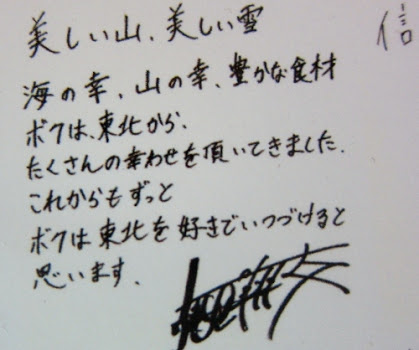 美しい山、美しい雪
海の幸、山の幸、豊かな食材
ボクは、東北から、
たくさんの幸わせを頂いてきました。
これからもずっと
ボクは東北を好きでいつづけると
思います。
信